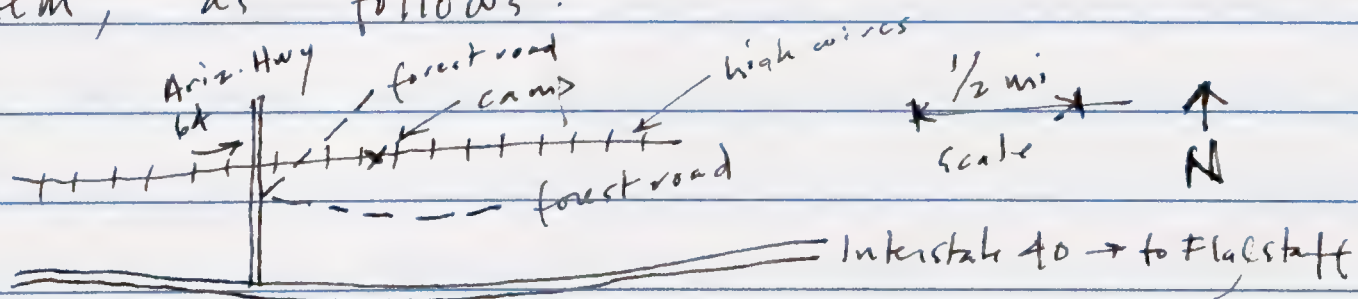 as follows:
Ariz. Hwy
64
forest road
camp
high wires
1/2 mi
scale
N
forest road
Interstate 40 → to Flagstaff